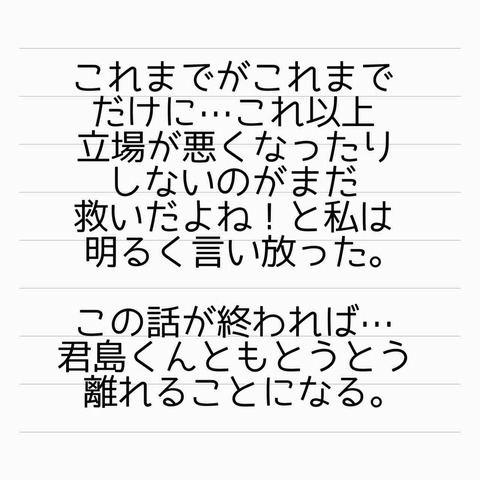 これまでがこれまで
だけに…これ以上
立場が悪くなったり
しないのがまだ
救いだよね！と私は
明るく言い放った。
この話が終われば…
君島くんともとうとう
離れることになる。